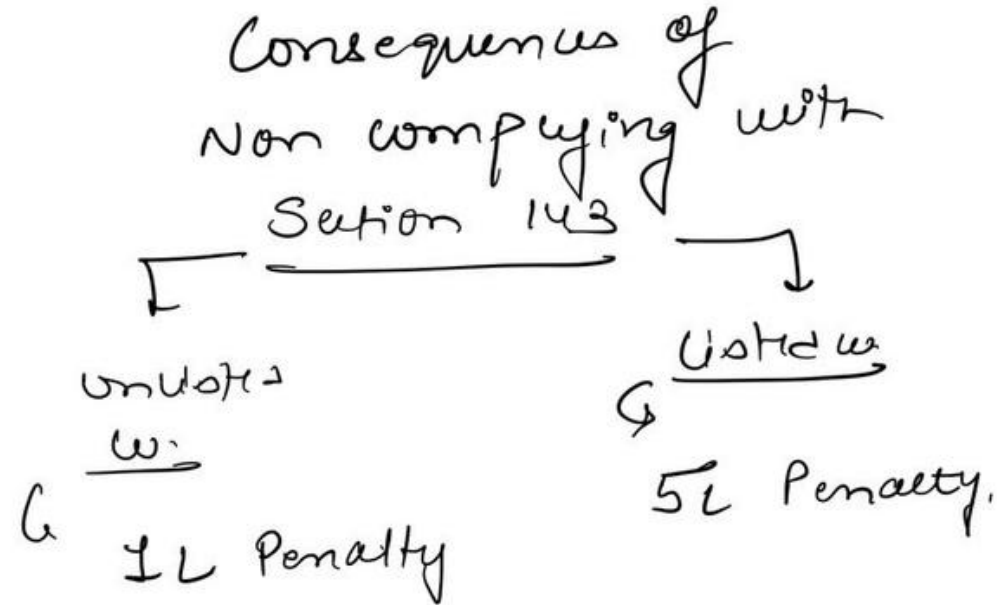 Consequences of
Non complying with
Section 143
unlisted
co.
1L Penalty
listed co.
5L Penalty.